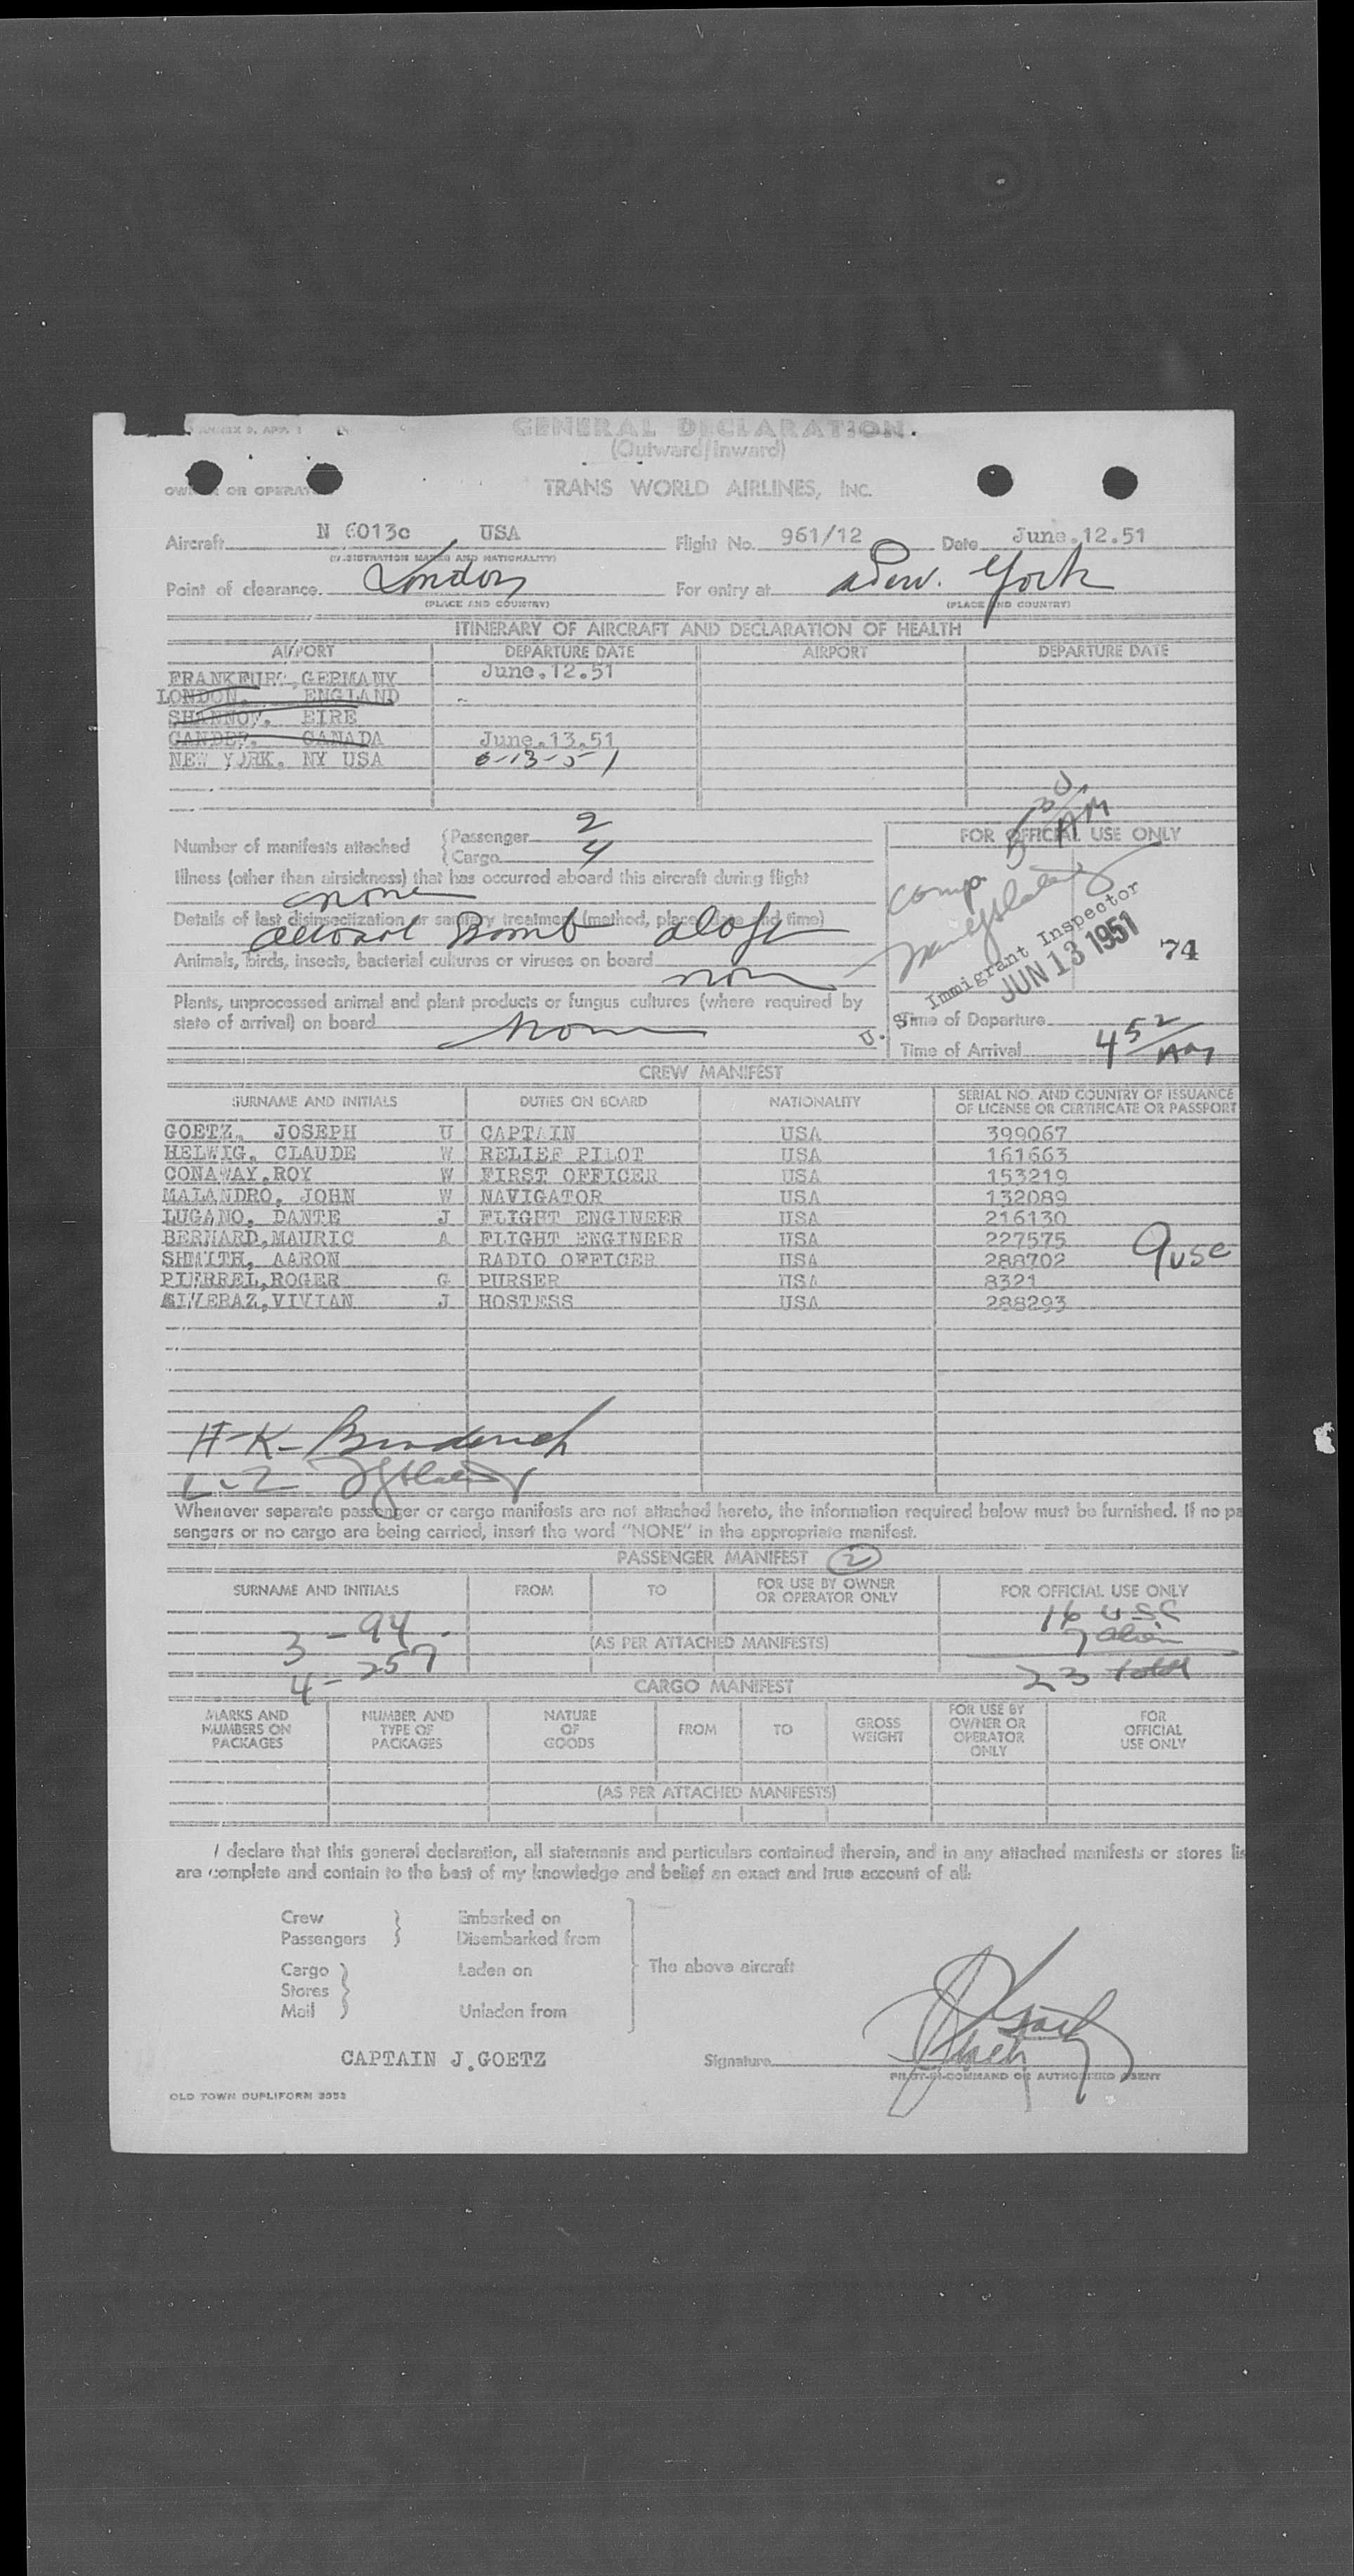 ANNEX 9, APP. 1
GENERAL DECLARATION.
(Outward/Inward)
OWNER OR OPERATOR
TRANS WORLD AIRLINES, INC.
Aircraft N 6013c USA Flight No. 961/12 Date June.12.51
(REGISTRATION MARKS AND NATIONALITY)
Point of clearance. London For entry at New York
(PLACE AND COUNTRY) (PLACE AND COUNTRY)
ITINERARY OF AIRCRAFT AND DECLARATION OF HEALTH
AIRPORT DEPARTURE DATE AIRPORT DEPARTURE DATE
FRANKFURT,GERMANY June.12.51
LONDON, ENGLAND
SHANNON. EIRE
GANDER. CANADA June.13.51
NEW YORK. NY USA 6-13-51
Number of manifests attached
Passenger 2
Cargo 4
FOR OFFICIAL USE ONLY
Illness (other than airsickness) that has occurred aboard this aircraft during flight
none
Details of last disinsectization or sanitary treatment (method, place, date and time)
Bomb
Animals, birds, insects, bacterial cultures or viruses on board non
Plants, unprocessed animal and plant products or fungus cultures (where required by
state of arrival) on board non
30 AM
Comp.
U. S. Immigrant Inspector
JUN 13 1951
74
Time of Departure
Time of Arrival 4 52 AM
CREW MANIFEST
SURNAME AND INITIALS DUTIES ON BOARD NATIONALITY SERIAL NO. AND COUNTRY OF ISSUANCE OF LICENSE OR CERTIFICATE OR PASSPORT
GOETZ, JOSEPH U CAPTAIN USA 399067
HELWIG, CLAUDE W RELIEF PILOT USA 161663
CONAWAY,ROY W FIRST OFFICER USA 153219
MALANDRO, JOHN W NAVIGATOR USA 132089
LUGANO, DANTE J FLIGHT ENGINEER USA 216130
BERNARD,MAURIC A FLIGHT ENGINEER USA 227575
SHMITH, AARON RADIO OFFICER USA 288702
9 USC
PIERREL,ROGER G PURSER USA 8321
ALVERAZ,VIVIAN J HOSTESS USA 288293
H-K-
L-2
Whenever separate passenger or cargo manifests are not attached hereto, the information required below must be furnished. If no pa
sengers or no cargo are being carried, insert the word "NONE" in the appropriate manifest.
PASSENGER MANIFEST 2
SURNAME AND INITIALS FROM TO FOR USE BY OWNER OR OPERATOR ONLY FOR OFFICIAL USE ONLY
16 USC
3 - 94 7 alien
(AS PER ATTACHED MANIFESTS)
4 - 257 23 total
CARGO MANIFEST
MARKS AND NUMBERS ON PACKAGES NUMBER AND TYPE OF PACKAGES NATURE OF GOODS FROM TO GROSS WEIGHT FOR USE BY OWNER OR OPERATOR ONLY FOR OFFICIAL USE ONLY
(AS PER ATTACHED MANIFESTS)
I declare that this general declaration, all statements and particulars contained therein, and in any attached manifests or stores lis
are complete and contain to the best of my knowledge and belief an exact and true account of all:
Crew Embarked on
Passengers Disembarked from
Cargo Laden on The above aircraft
Stores
Mail Unladen from
CAPTAIN J.GOETZ Signature
PILOT-IN-COMMAND OR AUTHORIZED AGENT
OLD TOWN DUPLIFORM 3053